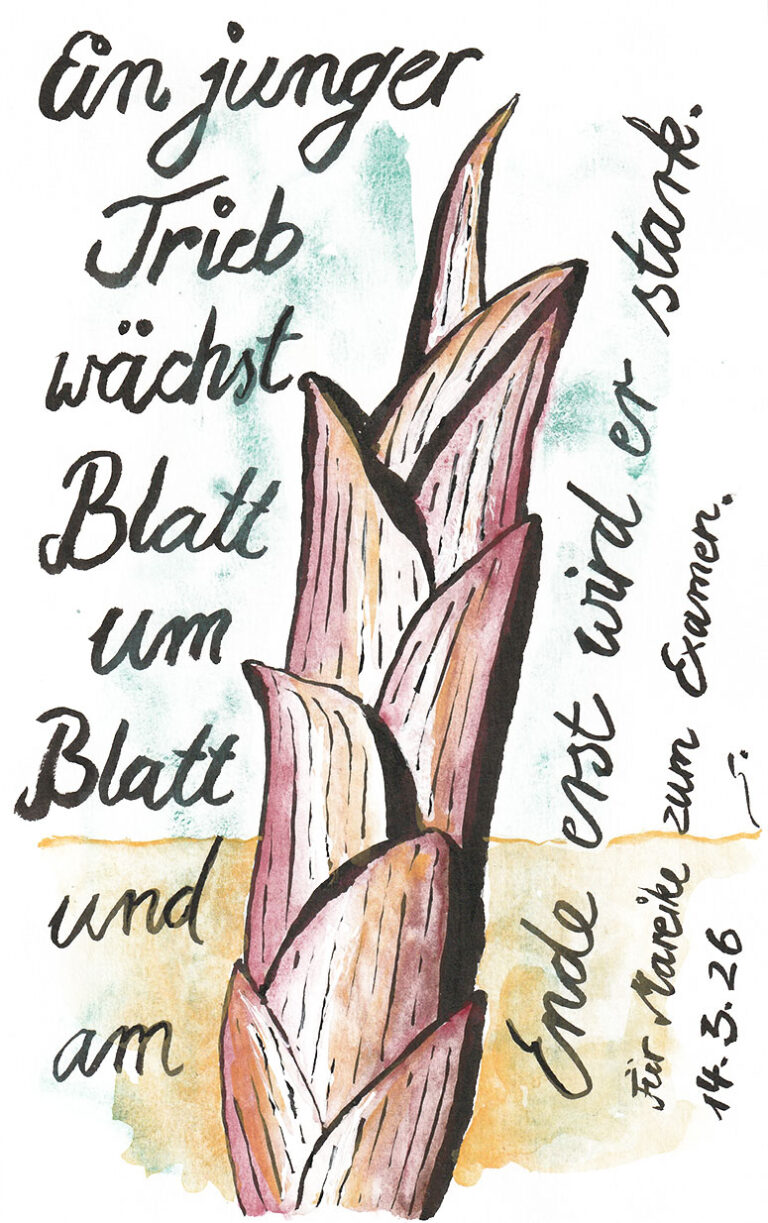 Ein junger
Trieb
wächst
Blatt
um
Blatt
und
am
Ende erst wird er stark.
Für Mareike zum Examen.
14.3.26